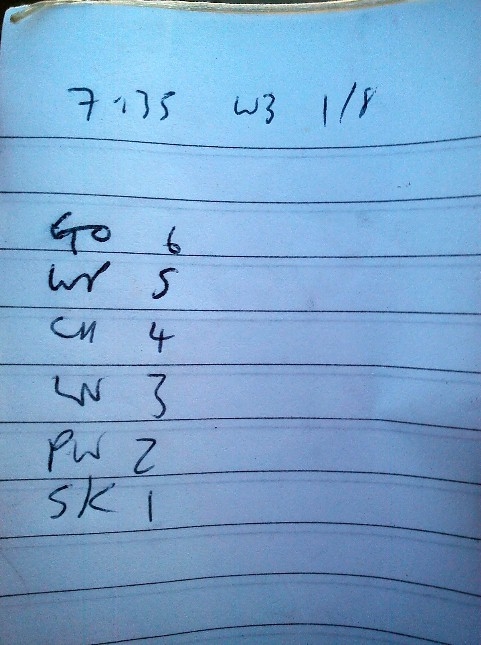 7:35 W3 1/8
GO 6
WR 5
CH 4
LN 3
PW 2
SK 1